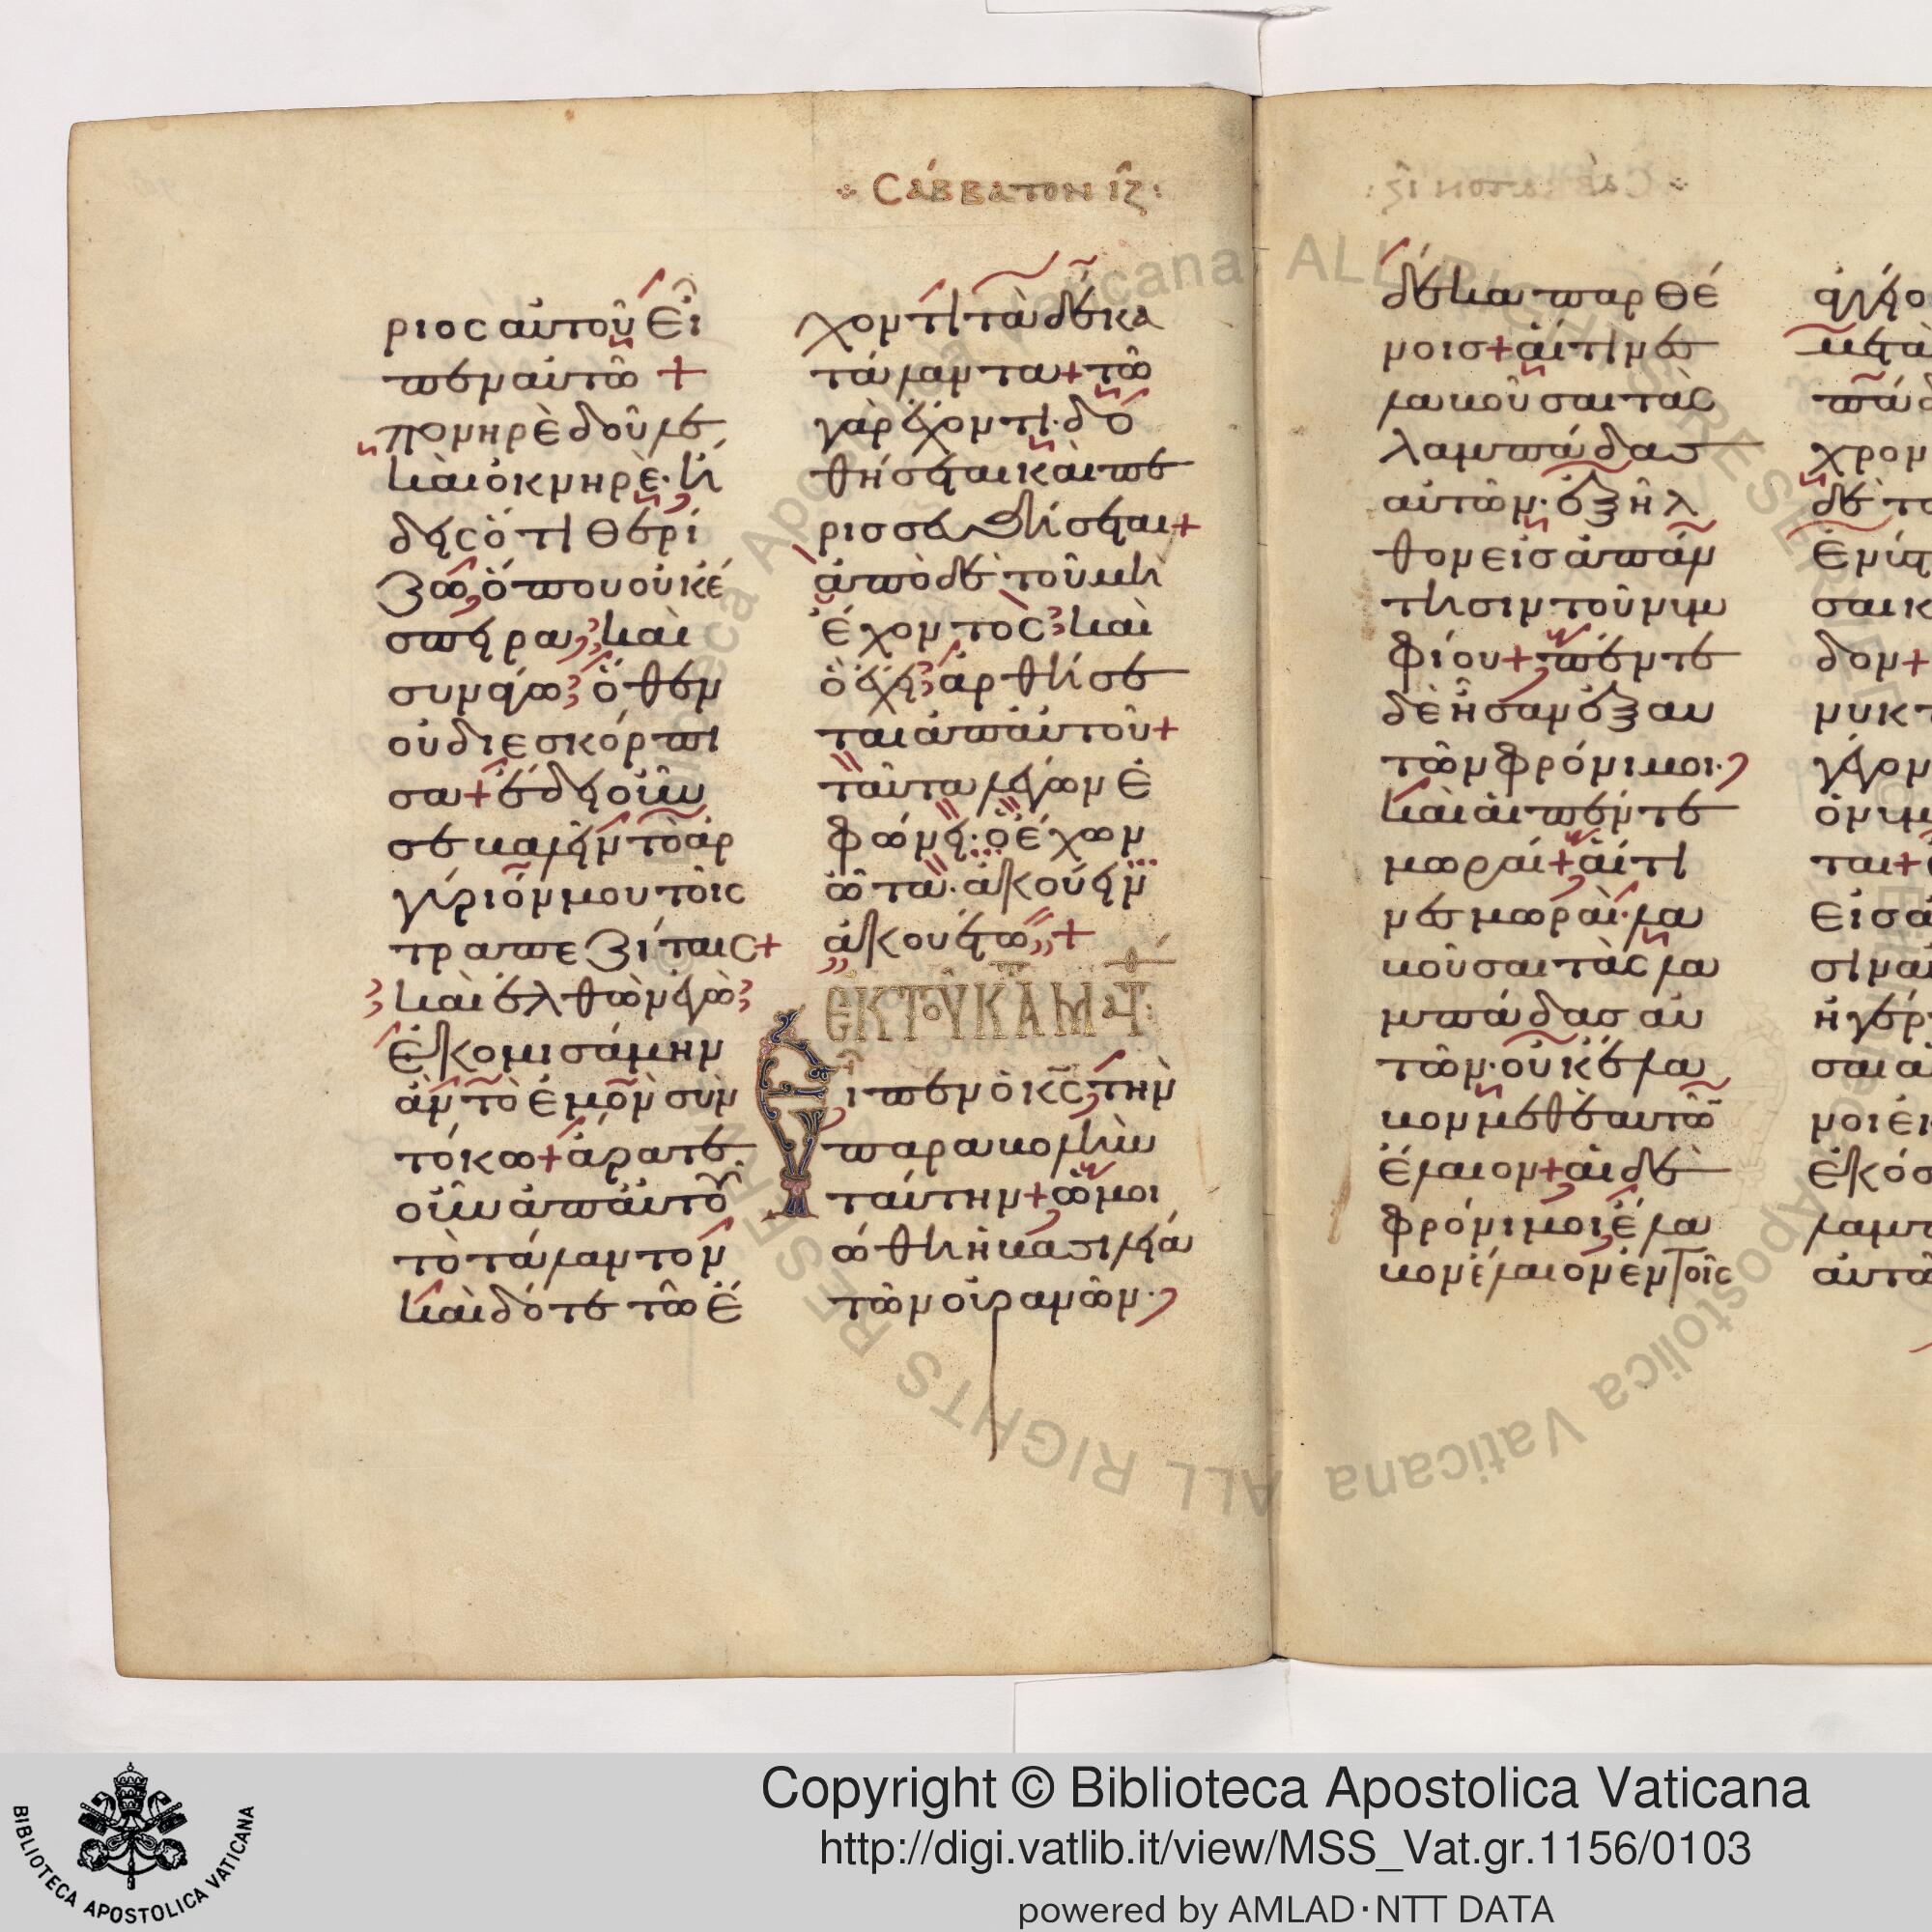 Σάββατον ιζ:
ριος αὐτοῦ εἶ
πεν αὐτῶ +
πονηρὲ δοῦλε,
καὶ ὀκνηρὲ· ἤ
δεις ὅτι θερί
ζω, ὅπου οὐκ ἔ
σπειρα, καὶ
συνάγω, ὅθεν
οὐ διεσκόρπι
σα + ἔδει οὖν
σε βαλεῖν τὸ ἀρ
γύριόν μου τοῖς
τραπεζίταις +
καὶ ἐλθὼν ἐγὼ
ἐκομισάμην
ἂν τὸ ἐμὸν σὺν
τόκω + ἄρατε
οὖν ἀπ' αὐτοῦ
τὸ τάλαντον
καὶ δότε τῶ ἔ
χοντι τὰ δέκα
τάλαντα + τῶ
γὰρ ἔχοντι· δο
θήσεται καὶ πε
ρισσευθήσεται +
ἀπὸ δὲ τοῦ μὴ
ἔχοντος καὶ
ὃ ἔχει ἀρθήσε
ται ἀπ' αὐτοῦ +
ταῦτα λέγων ἐ
φώνει· ὁ ἔχων
ὦτα· ἀκούειν
ἀκουέτω +
ἐκ τοῦ κατὰ Ματ:
Εἶπεν ὁ κς τὴν
παραβολὴν
ταύτην + ὡμοι
ώθη ἡ βασιλεία
τῶν οὐρανῶν·
δέκα παρθέ
νοις + αἵτινες
λαβοῦσαι τὰς
λαμπάδας
αὐτῶν· ἐξῆλ
θον εἰς ἀπάν
τησιν τοῦ νυμ
φίου + πέντε
δὲ ἦσαν ἐξ αὐ
τῶν φρόνιμοι·
καὶ αἱ πέντε
μωραί + αἵτι
νες μωραὶ· λα
βοῦσαι τὰς λα
μπάδας αὐ
τῶν· οὐκ ἔλα
βον μεθ' ἑαυτῶν
ἔλαιον + αἱ δὲ
φρόνιμοι ἔλα
βον ἔλαιον ἐν τοῖς
Copyright © Biblioteca Apostolica Vaticana
http://digi.vatlib.it/view/MSS_Vat.gr.1156/0103
powered by AMLAD·NTT DATA
BIBLIOTECA APOSTOLICA VATICANA